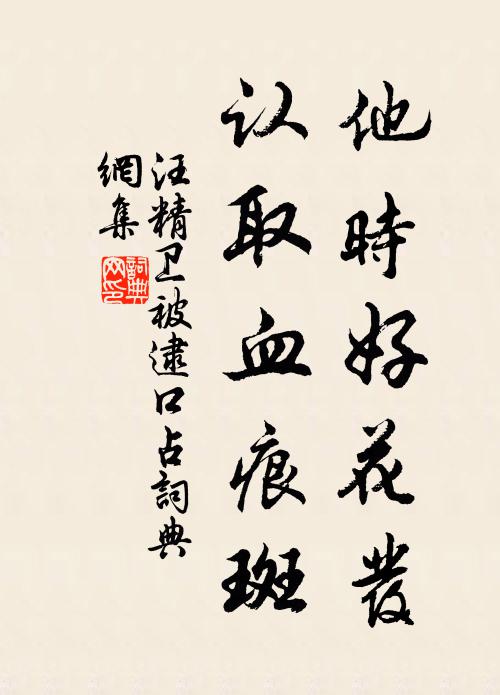 他時好花發
认取血痕斑
汪精卫被逮口占詞典
網集
詞典
网印